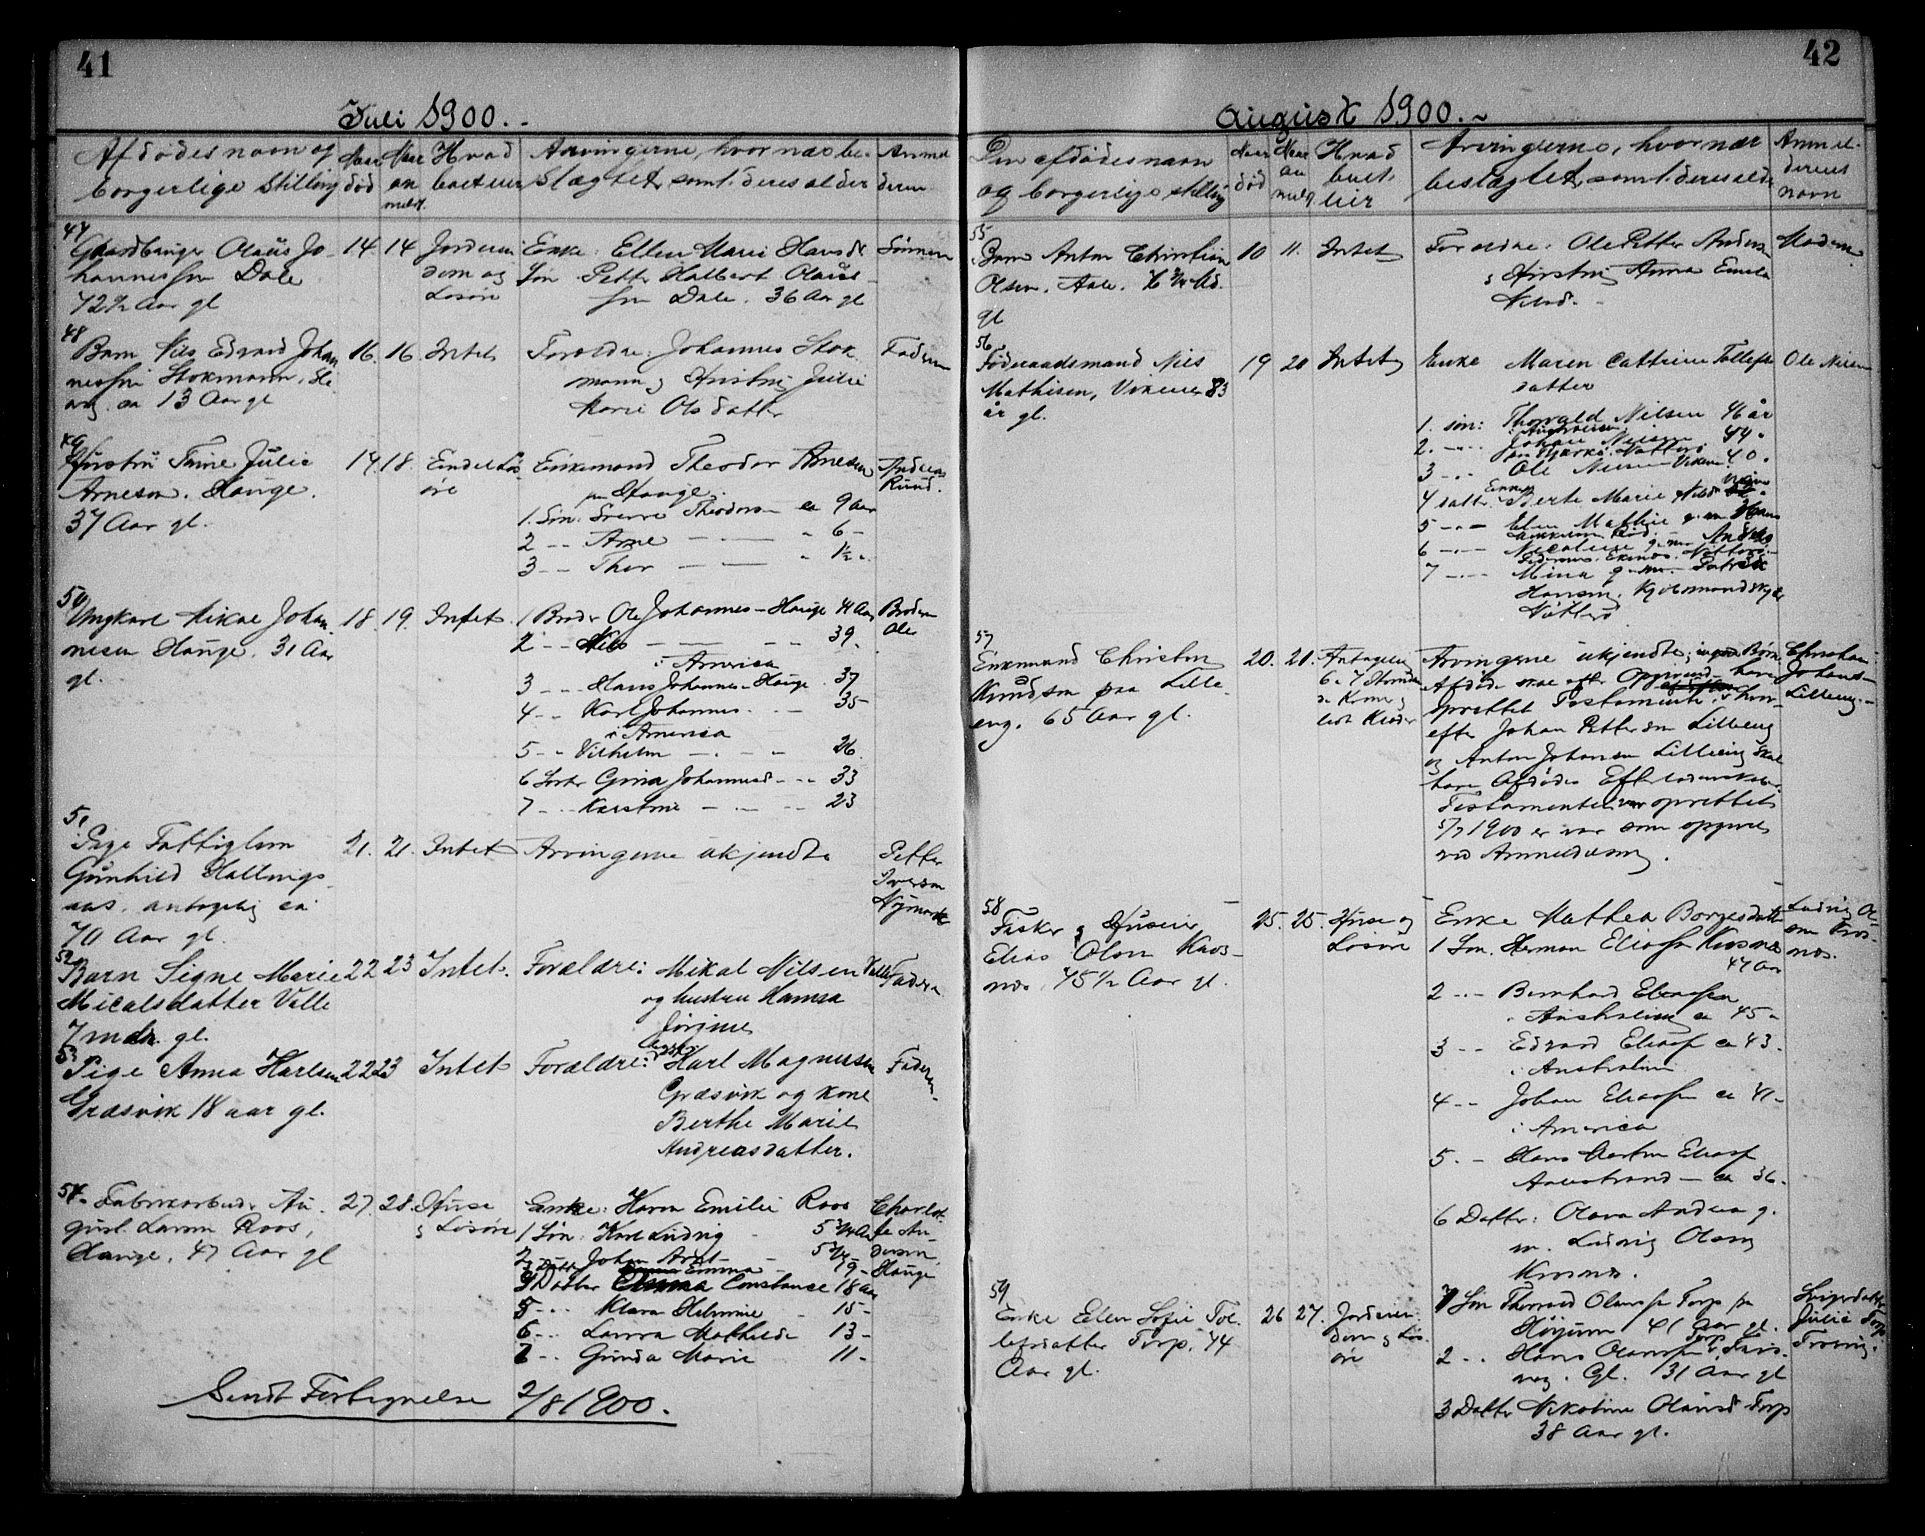 41
Juli 1900.
Afdødes navn og borgerlige Stilling
Naar død
Naar anmeldt
Hvad boet eier
Arvingerne, hvor nær beslægtet, samt deres alder
Anmelderen
47
Gaardbruger Olaus Johannessen Dale
72½ Aar gl
14
14
Jordeiendom og Løsøre
Enke Ellen Marie Hansdt
Søn Petter Halbert Olaussen Dale. 36 Aar gl
Sønnen
48
Barn Nils Edvard Johannessen Stokmann,
ca 13 Aar gl
16.
16.
Intet
Forældre: Johannes Stokmann og Hustru Julie
Marie Olsdatter
Faderen
49
Hustru Trine Julie
Arnesen. Hauge.
37 Aar gl.
14
18.
Endel Løsøre
Enkemand Theodor Arnesen
Hauge.
1. Søn. Sverre Theodorsen ca 9 Aar
2 -- Arne — — " 6 -
3 -- Thor — — " 1½ "
Andreas
50
Ungkarl Mikal Johannesen Hauge. 31 Aar
gl.
18.
19.
Intet.
1 Broder Ole Johannes- Hauge 41 Aar
2 -- Nils — — 39
i America
3 -- Hans Johannes- Hauge 37
4 -- Karl Johannes - 35
i America
5 -- Vilhelm — 26
6 Søster Gina Johannesd - 33
7 -- Karstine — 23
Broderen
Ole
51
Pige Fattiglem
Gunhild Hallings
aas. antagelig ca
70 Aar gl.
21.
21.
Intet
Arvingerne ukjendte
Petter
Iversen
Nymark
52
Barn Signe Marie
Micalsdatter Valle
7 mdr. gl.
22
23
Intet.
Forældre: Mikal Nilsen Valle
og hustru Hansa
Jørgine
Faderen
53
Pige Anna Karlsen
Græsvik 18 aar gl.
22
23
Intet
Forældre: Karl Magnusen
Græsvik og Kone
Berthe Marie
Andreasdatter.
Faderen.
54
Fabrikarbeider August Laurin Roos,
Hauge. 47 Aar gl
27.
28.
Huse
og Løsøre
Enke: Karen Emilie Roos
1 Søn: Karl Ludvig
2 Johan Arnt
Datt Emma 19 -
4 Datter Constance 18 Aar
5 -- Klara Helmine 15 -
6 -- Laura Mathilde 13 -
7 -- Gunda Marie 11 -
Charlotte Andersen
Hauge
Sendt Fortegnelse 2/8 1900.
42
August 1900.
Den afdødes navn og borgerlige stilling
Naar død
Naar anmeldt
Hvad boet eier
Arvingerne, hvor nær beslægtet, samt deres alder
Anmelderens navn
55
Barn Anton Christian
Olsen. Aale.
gl
10
11.
Intet
Forældre: Ole Petter Andersen
og Hustru Anna Emilie
Moderen
56
Føderaadsmand Nils
Mathisen, Vikene 83
år gl.
19
20
Intet
Enke Maren Cathrine Tollefsdatter
1. søn: Thorvald Nilsen 46 år
i Australien
2. -- Johan Nilsen 44 "
3 -- Ole Nilsen Vikene 40 "
4 datter Berte Marie
5 -- Elen Mathie
6 --
7 -- Mina
Hansen.
Nøtterø
Ole Nilsen
57
Enkemand Christen
Knudsen paa Lilleeng. 65 Aar gl.
20.
21.
Antagelig
Arvingerne ukjendte; ingen Børn
Afdøde skal efter Opgivende have
oprettet Testamente, hvorefter Johan Pettersen Lilleeng
og Anton Johansen Lilleeng skal
have Afdødes Efterladenskaber.
Testamentet var oprettet
5/7 1900
ved Anmeldelsen.
Christian
Johans-
Lilleeng.
58
Fisker og Huseier
Elias Olsen Krosnæs, 75½ Aar gl.
25.
25.
Huse og
Løsøre
Enke Mathea Borgesdatter
1 Søn. Herman Eliassen Krosnæs
47 Aar
2 -- Bernhard Eliassen
i Australien ca 45 "
3 -- Edvard Eliass ca 43.
i Australien
4 -- Johan Eliassen ca 41 -
i America
5. - Hans Martin Eliass
ca 36.
6 Datter: Olava Andrea g.
m. Ludvig Olsen
Krosnes.
Ludvig Olsen Krosnæs.
59
Enke Ellen Sofie Tollefsdatter Torp. 74
Aar gl.
26
27.
Jordeiendom og Løsøre
1 Søn Thorvald Olaussen Torp
41 Aar gl.
2 -- Hans Olaussen Torp
31 Aar gl
3 Datter Nikoline Olausd Torp
38 Aar gl.
Svigerdatter
Julie Torp